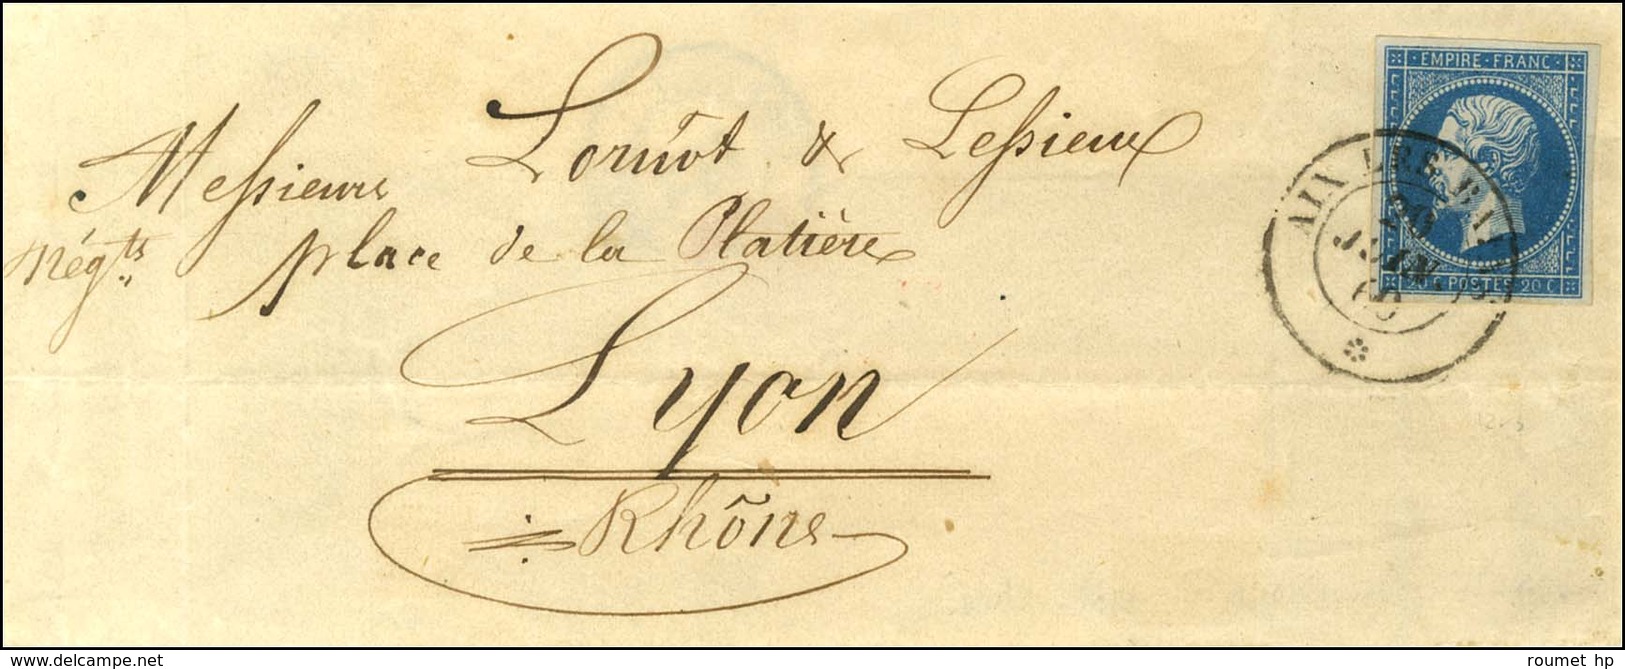 EMPIRE · FRANC ·
Messieurs Lornot & Lessieux
Négts place de la Platière
Lyon
Rhône
AIX LES BAI
20
JUIN
60
20 C POSTES 20 C
delcampe.net
roumet hp